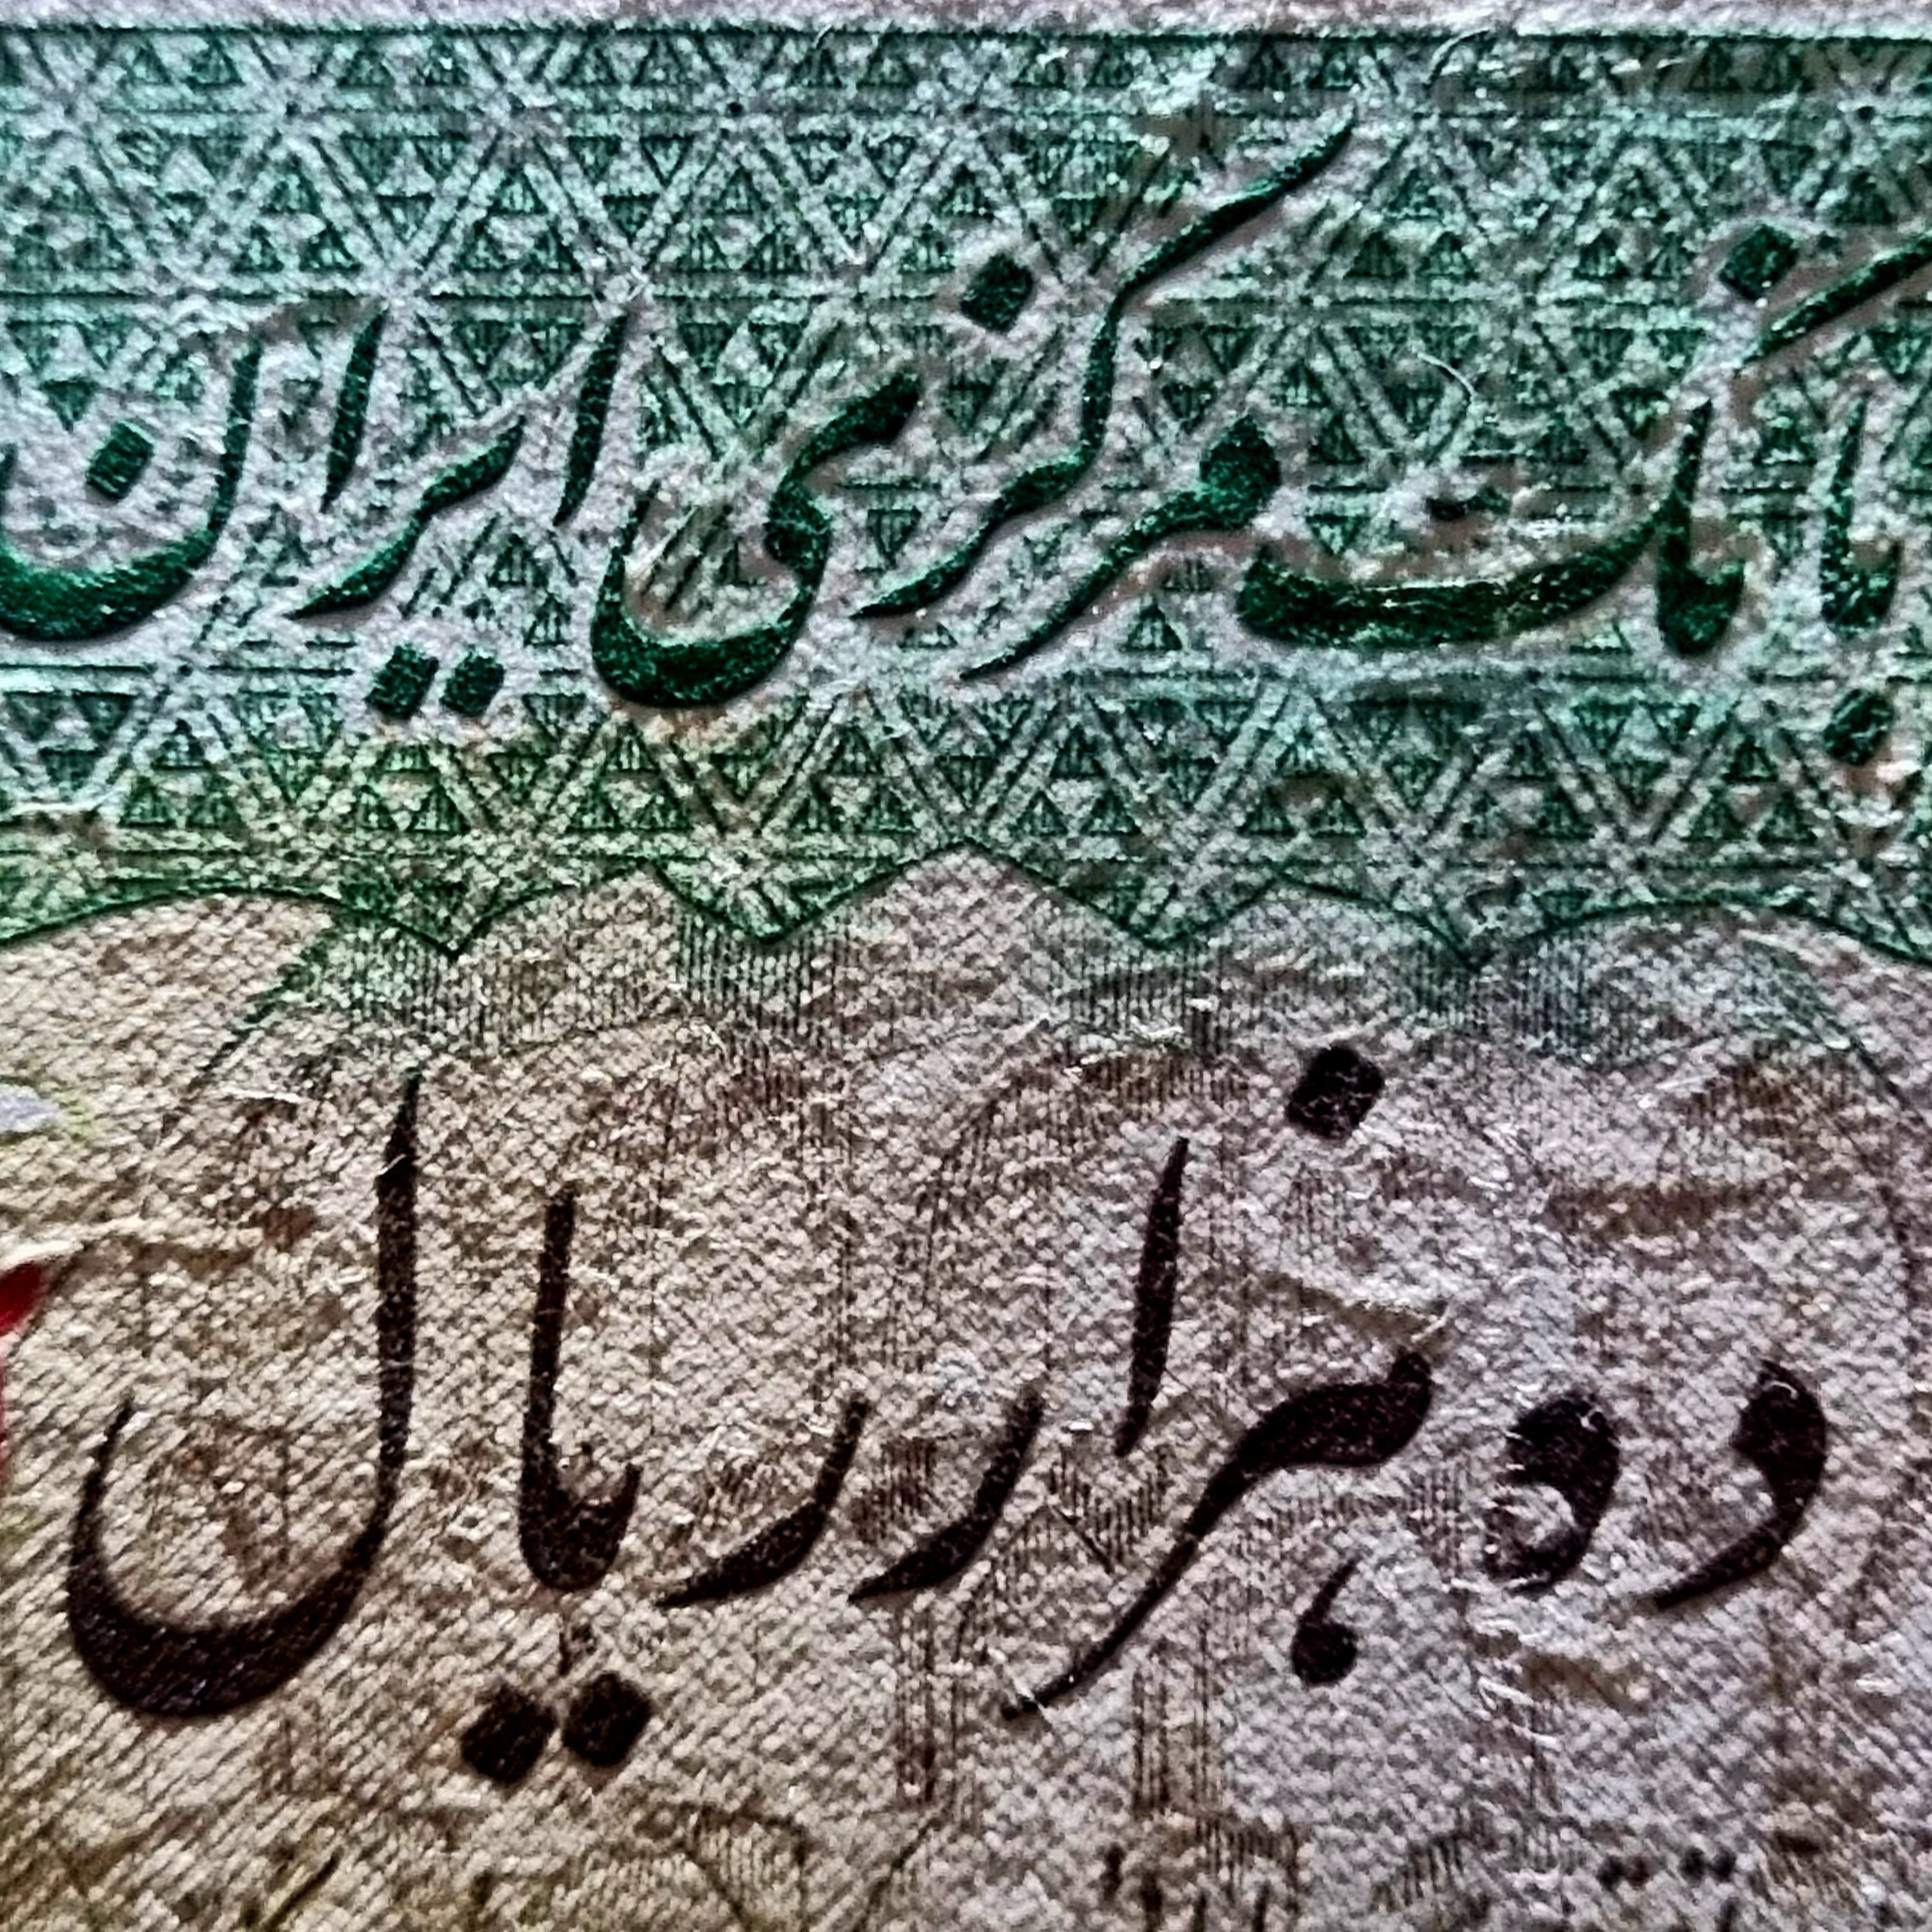 بانک مرکزی ایران
ده هزار ریال